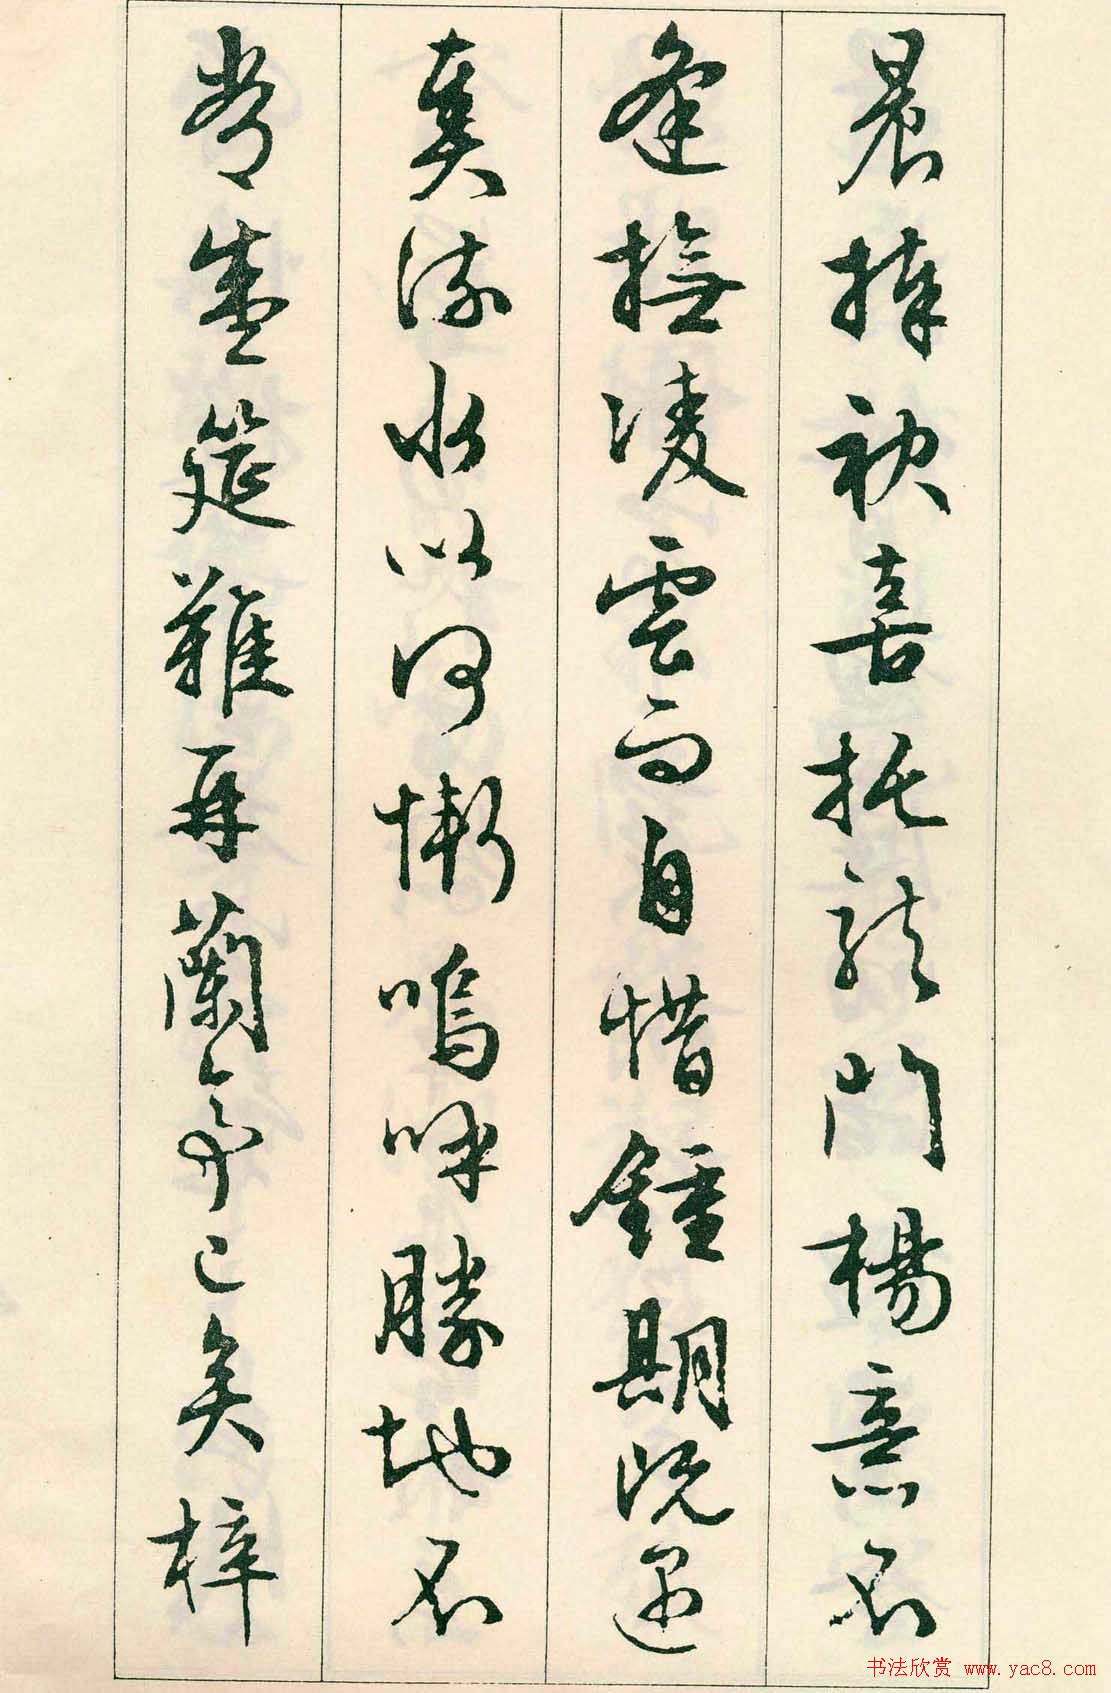 晨捧袂喜托龍門楊意不
逢撫凌雲而自惜鍾期既遇
奏流水以何慚嗚呼勝地不
常盛筵難再蘭亭已矣梓
书法欣赏 www.yac8.com